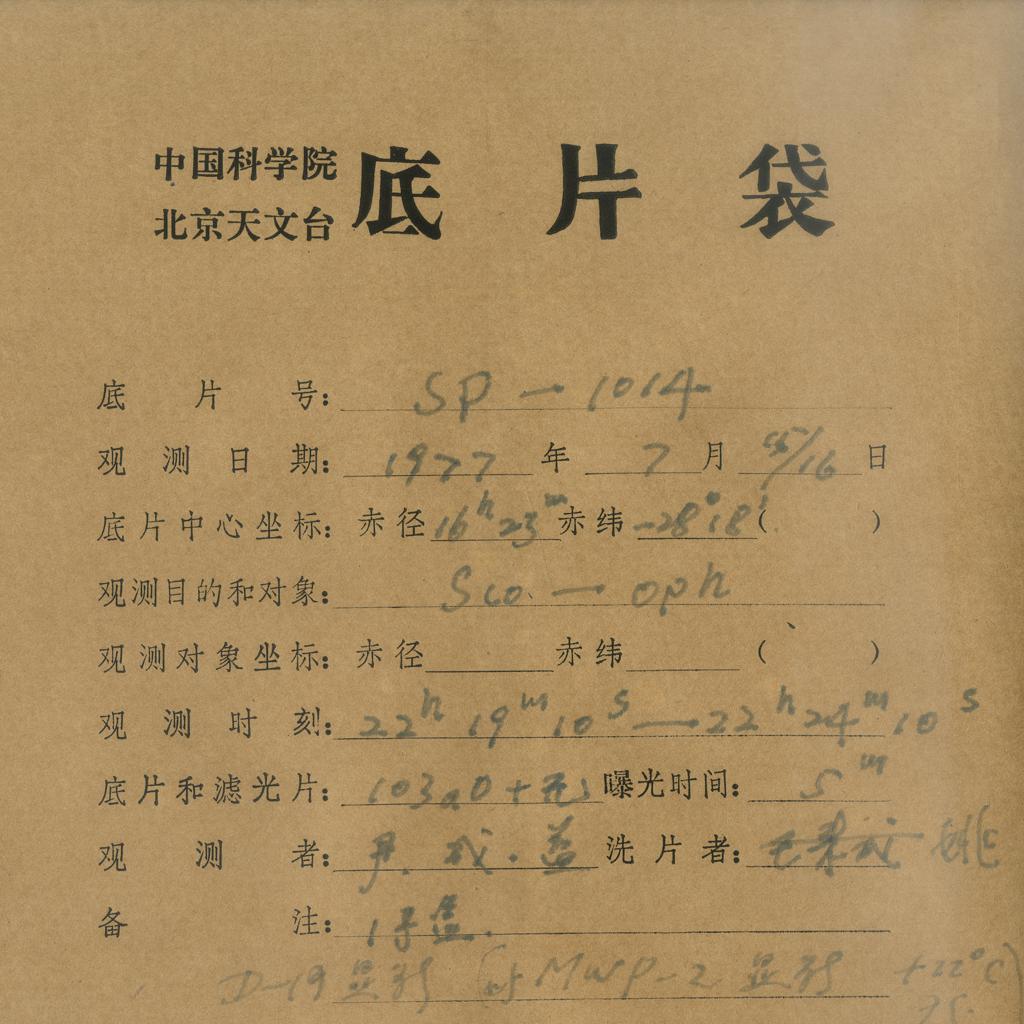 中国科学院
北京天文台
底片袋
底片号: SP — 1014
观测日期: 1977 年 7 月 15/16 日
底片中心坐标: 赤径 16h 23m 赤纬 -28°18' ( )
观测目的和对象: Sco. — oph
观测对象坐标: 赤径 赤纬 ( )
观测时刻: 22h 19m 10s — 22h 24m 10s
底片和滤光片: 103aO + 无 曝光时间: 5m
观测者: 洗片者:
备注: 1号盒.
D-19 显影 MWP-2 显影 +22°C